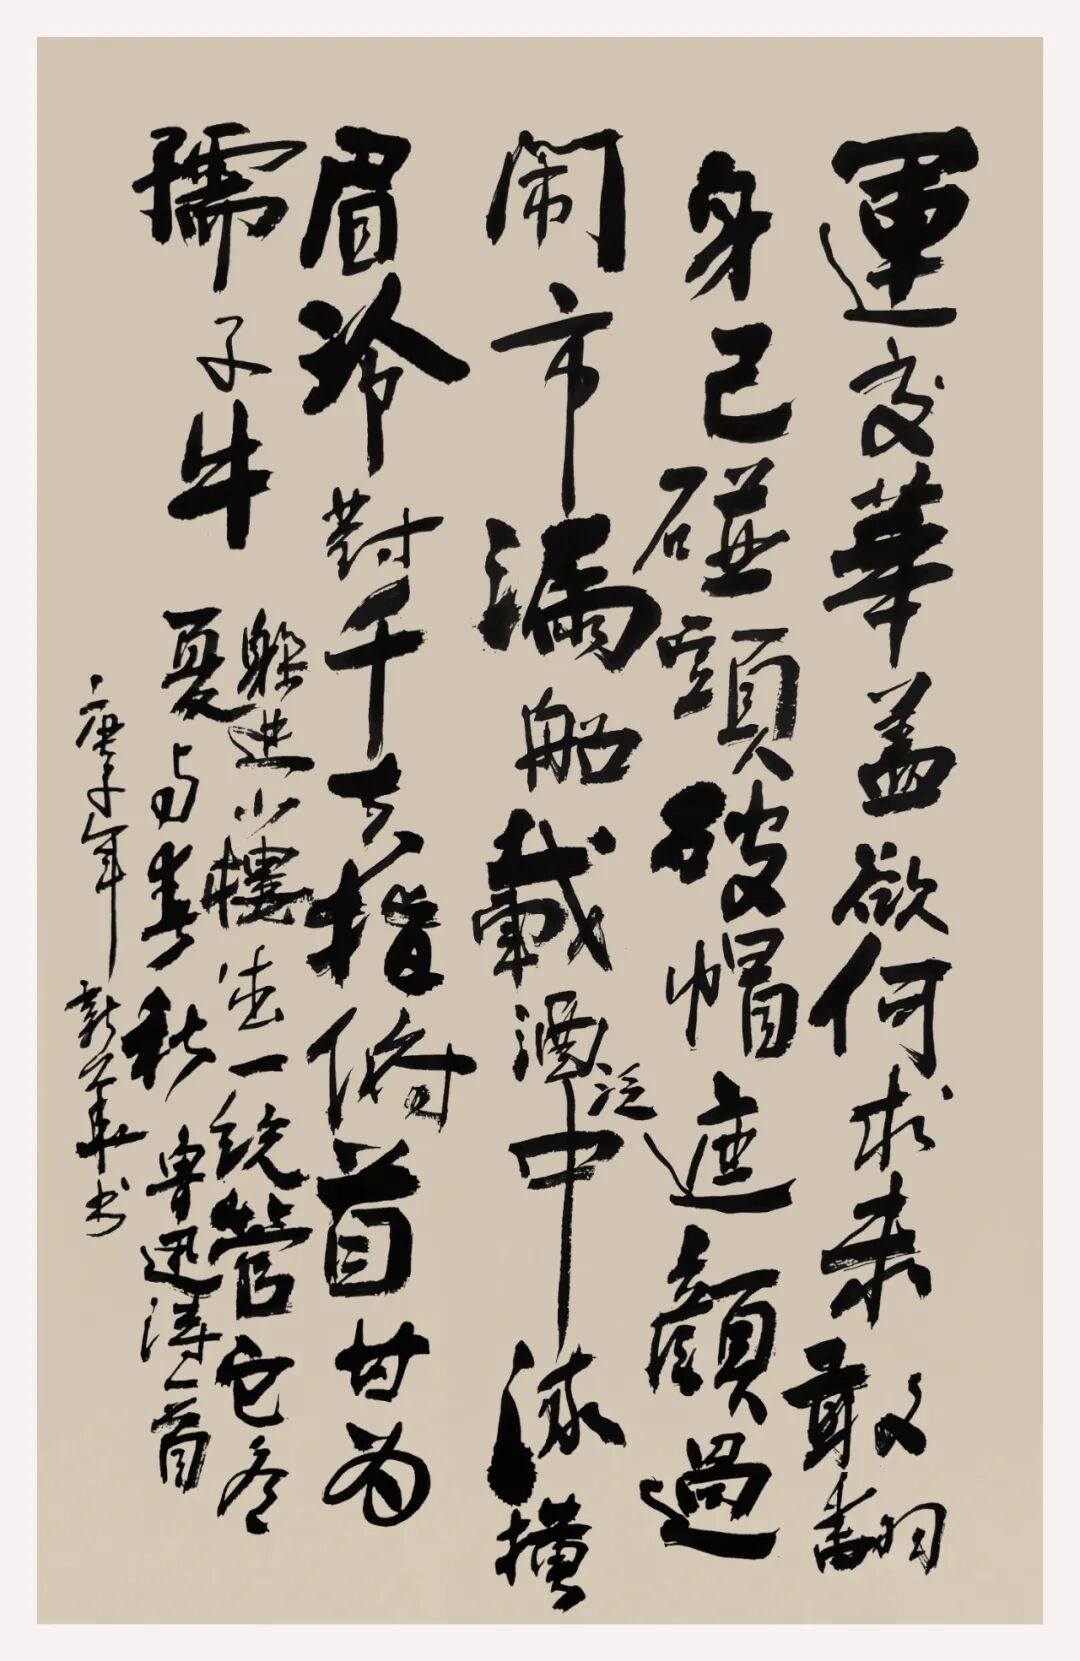 運交華盖欲何求未敢翻
身已碰頭破帽遮顏過
闹市漏船載酒泛中流橫
眉冷對千夫指俯首甘为
孺子牛
躲進小樓成一統管它冬
夏与春秋 魯迅詩一首
庚子年 新華书